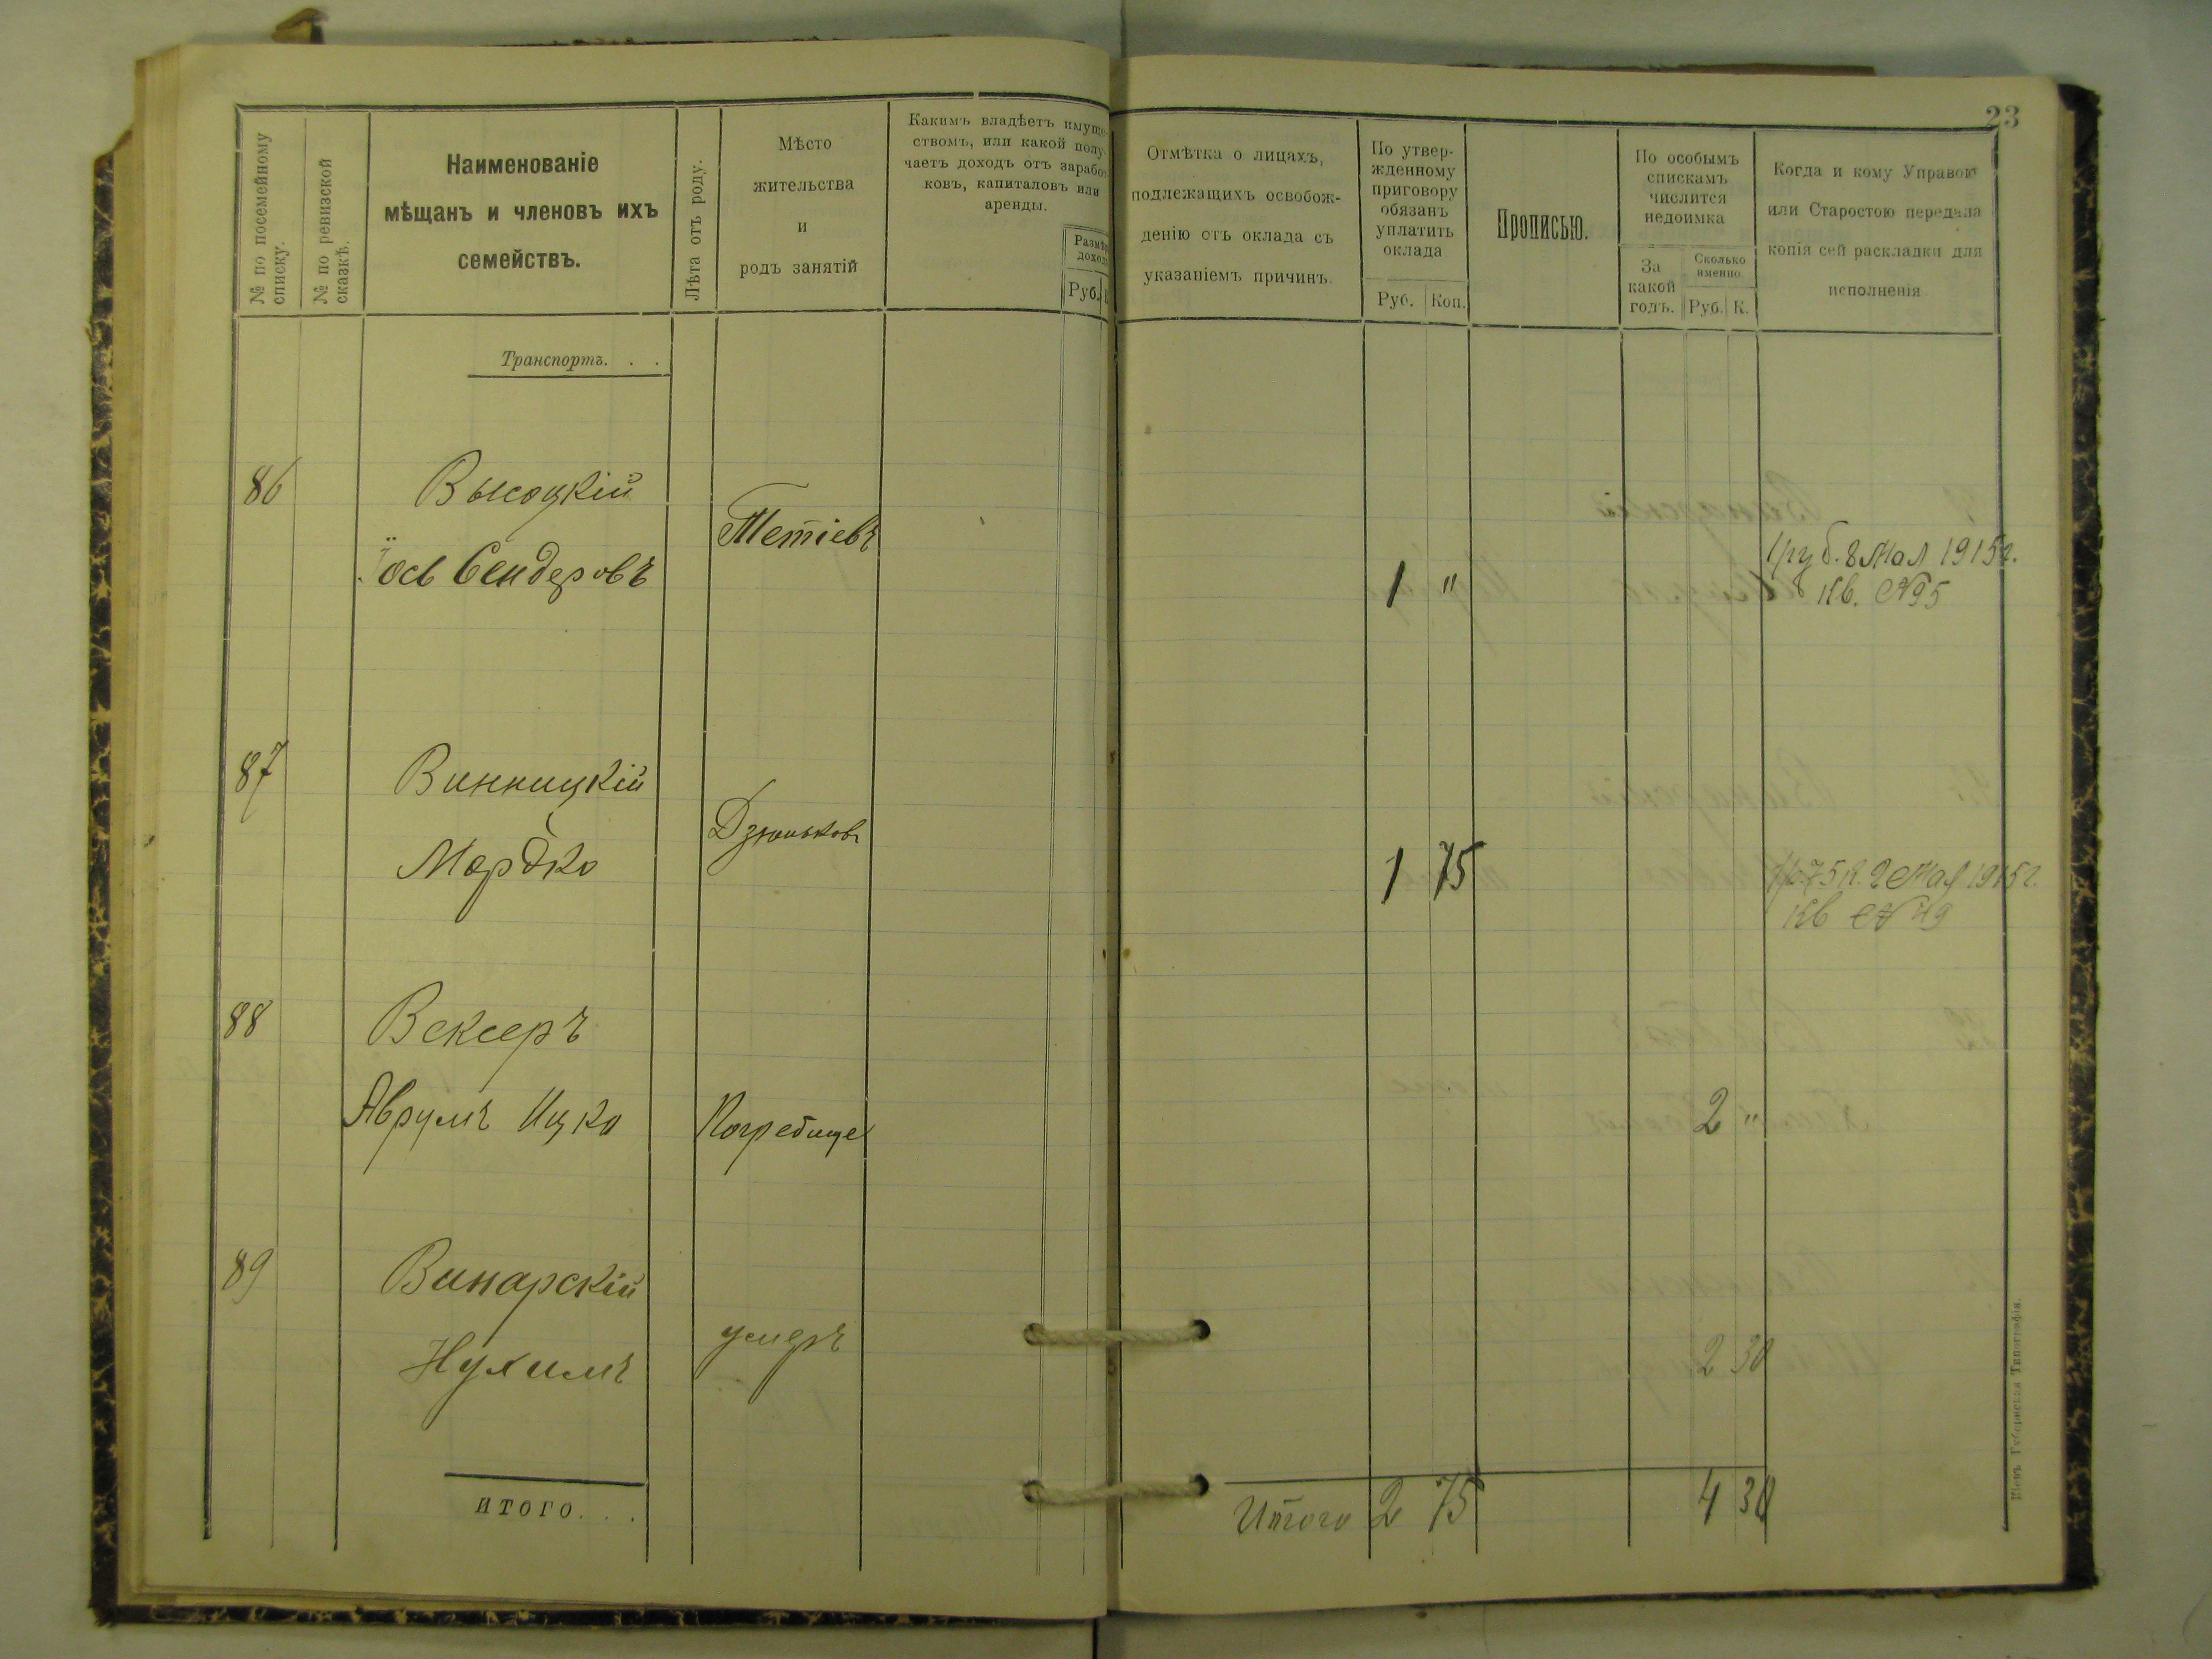 23
№ по посемейному
списку.
№ по ревизской
сказкѣ.
Наименованіе
мѣщанъ и членовъ ихъ
семействъ.
Лѣта отъ роду.
Мѣсто
жительства
и
родъ занятій
Какимъ владѣетъ имуще-
ствомъ, или какой полу-
чаетъ доходъ отъ заработ-
ковъ, капиталовъ или
аренды.
Размѣръ
дохода
Руб.
Отмѣтка о лицахъ,
подлежащихъ освобож-
денію отъ оклада съ
указаніемъ причинъ.
По утвер-
жденному
приговору
обязанъ
уплатить
оклада
Руб. Коп.
Прописью.
По особымъ
спискамъ
числится
недоимка
За
какой
годъ.
Сколько
именно.
Руб. К.
Когда и кому Управою
или Старостою передана
копія сей раскладки для
исполненія
Транспортъ. . .
86 Высоцкій
Іось Сендеровъ
Тетіевъ
1 "
1 руб. 8 Мая 1915 г.
Кв. №95
87 Винницкій
Мордко
Дзюньковъ
1 75
1 р. 75 к. 2 Мая 1915 г.
Кв №49
88 Вексеръ
Аврумъ Ицко
Погребище
2 "
89 Винарскій
Нухимъ
умеръ
2 30
ИТОГО. . .
Итого 2 75
4 30
Кіевъ Губернская Типографія.